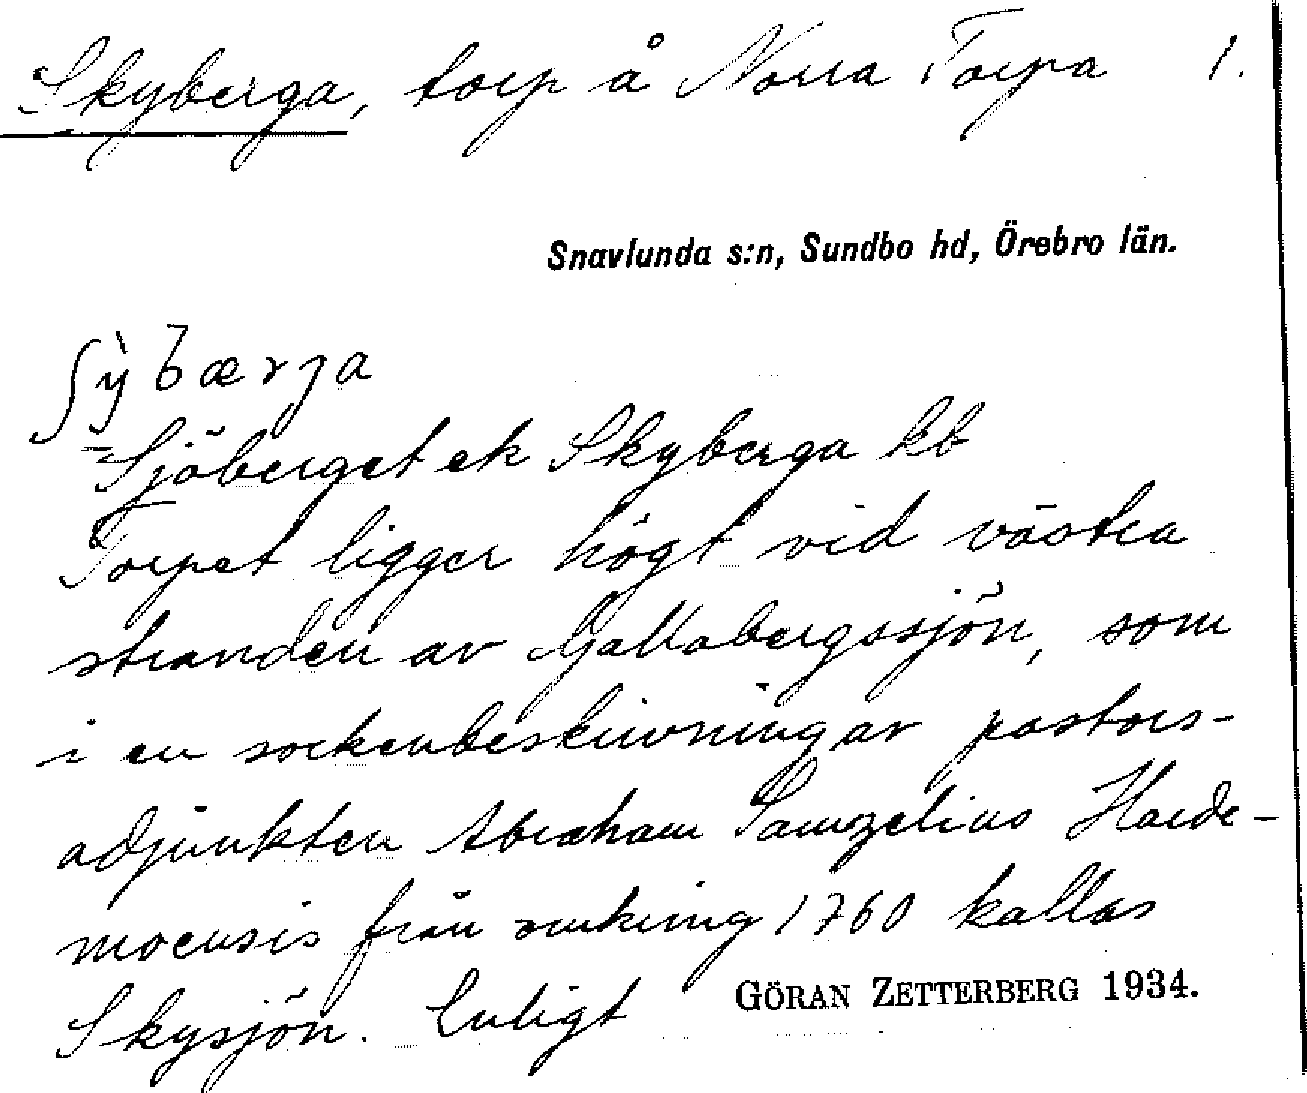 Skyberga, torp å Norra Torpa 1.
Snavlunda s:n, Sundbo hd, Örebro län.
ʃỳbærja
= Sjöberget ek Skyberga kb
Torpet ligger högt vid västra
stranden av Gallabergssjön, som
i en sockenbeskrivning av pastors-
adjunkten Abraham Samzelius Harde-
moensis från omkring 1760 kallas
Skysjön. Enligt
GÖRAN ZETTERBERG 1934.